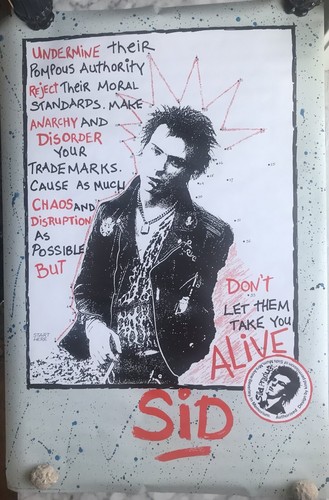 UNDERMINE their
POMPOUS AUTHORITY
REJECT their MORAL
STANDARDS. MAKE
ANARCHY AND
DISORDER
YOUR
TRADEMARKS.
CAUSE AS MUCH
CHAOS AND
DISRUPTION
AS
POSSIBLE
BUT
DON'T
LET THEM
TAKE YOU
ALiVE
START
HERE
SiD